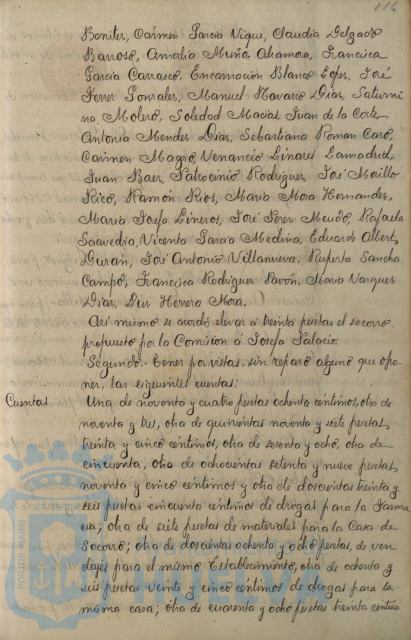 116
Boniter, Cármen García Vique, Claudia Delgado
Barroso, Amalia Muño, Ahamora, Francisca
García Carrasco, Encarnacion Blanco Eges, José
Ferrer Gonzales, Manuel Navarro Diaz, Saturni
na, Molero, Soledad Macias, Juan de la Corte
Antonia Mendez Diaz, Sebastiana Roman Caro,
Carmen Magro, Venancio Linares Lamadrid,
Juan Baez, Patrocinio Rodriguez, José Morillo
Rico, Ramón Rios, Maria Mora Hernandez,
Maria Josefa Lineros, José Perez Mendo, Rafaela
Saavedra, Vicente Garcia Medina, Eduardo Albert
Durán, José Antonio Villanueva, Ruperta Sancha
Campo, Francisca Rodriguez Pavón, Maria Vazquez
Diaz, Luis Herrera Mora.
Asi mismo se acordó elevar á treinta pesetas el socorro
propuesto por la Comision á Josefa Palacio.
Segundo. Tener por vistas, sin reparo alguno que opo-
ner, las siguientes cuentas:
Cuentas
Una de noventa y cuatro pesetas ochenta centimos, otra de
noventa y tres, otra de quinientas noventa y siete pesetas
treinta y cinco centimos, otra de sesenta y ocho, otra de
cincuenta, otra de ochocientas setenta y nueve pesetas
noventa y cinco centimos y otra de doscientas treinta y
seis pesetas cincuenta centimos de drogas para la Farma
cia; otra de siete pesetas de materiales para la Casa de
Socorro; otra de doscientas ochenta y ocho pesetas, de ven
dajes para el mismo Establecimiento, otra de ochenta y
seis pesetas veinte y cinco centimos de drogas para la
misma casa; otra de cuarenta y ocho pesetas treinta centimo